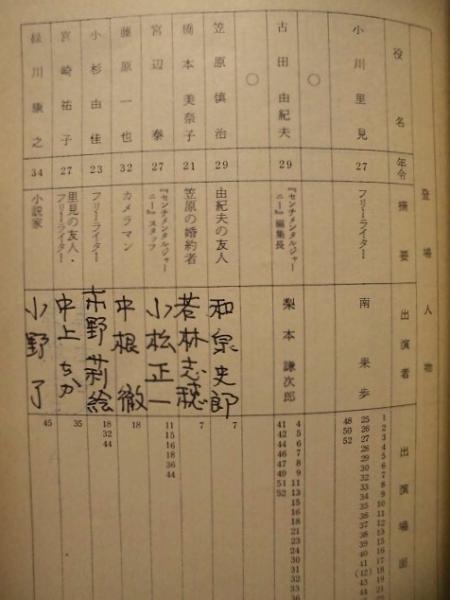 登場人物
役名
年令
摘要
出演者
出演場面
小川里見
27
フリーライター
南果歩
1
2
3
4
5
7
8
9
10
11
12
13
15
16
17
18
21
25
26
27
28
29
32
33
34
35
36
37
38
39
40
41
(42)
43
48
50
52
○
古田由紀夫
29
『センチメンタルジャーニー』編集長
梨本謙次郎
4
5
6
7
8
9
11
13
15
16
18
21
23
24
30
31
32
33
41
42
44
46
47
49
51
52
○
笠原慎治
29
由紀夫の友人
和泉史郎
7
橋本美奈子
21
笠原の婚約者
若林志穂
7
宮辺泰
27
『センチメンタルジャーニー』スタッフ
小松正一
11
15
16
18
36
44
藤原一也
32
カメラマン
中根徹
18
小杉由佳
23
フリーライター
市野莉絵
18
32
44
宮崎祐子
27
里見の友人・
フリーライター
中上ちか
35
緑川康之
34
小説家
小野了
45